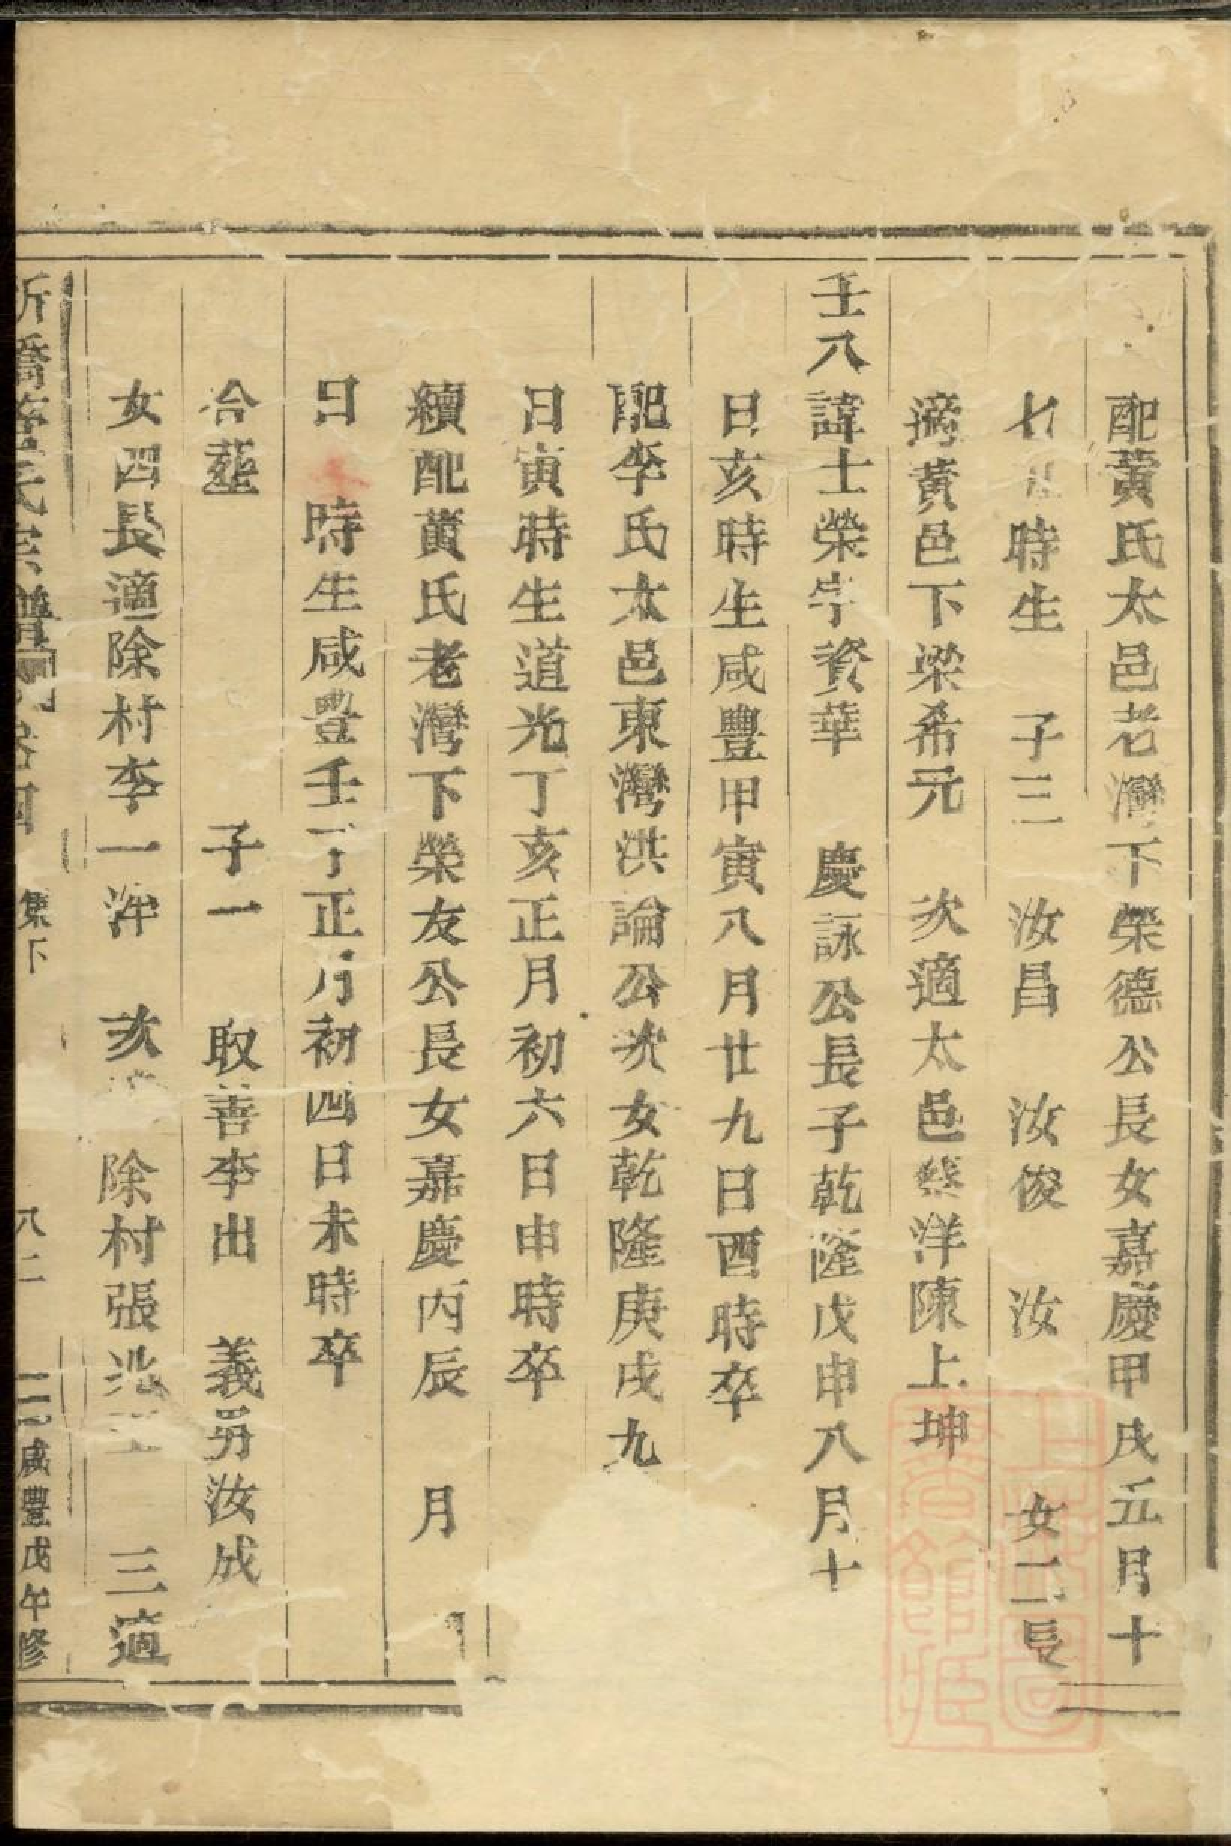 配黃氏太邑老灣下榮德公長女嘉慶甲戌五月十
七 時生 子三 汝昌 汝俊 汝 女二長
適黃邑下梁希元 次適太邑蔡洋陳上坤
壬八諱士榮字資華 慶詠公長子乾隆戊申八月十
日亥時生咸豐甲寅八月廿九日酉時卒
配李氏太邑東灣洪論公次女乾隆庚戌九
日寅時生道光丁亥正月初六日申時卒
續配黃氏老灣下榮友公長女嘉慶丙辰 月
日 時生咸豐壬子正月初四日未時卒
合葬 子一 取善李出 義男汝成
女四長適除村李一洋 次 除村張兆 三適
橋 氏宗譜 卷四 集下 八二 咸豐戊午修